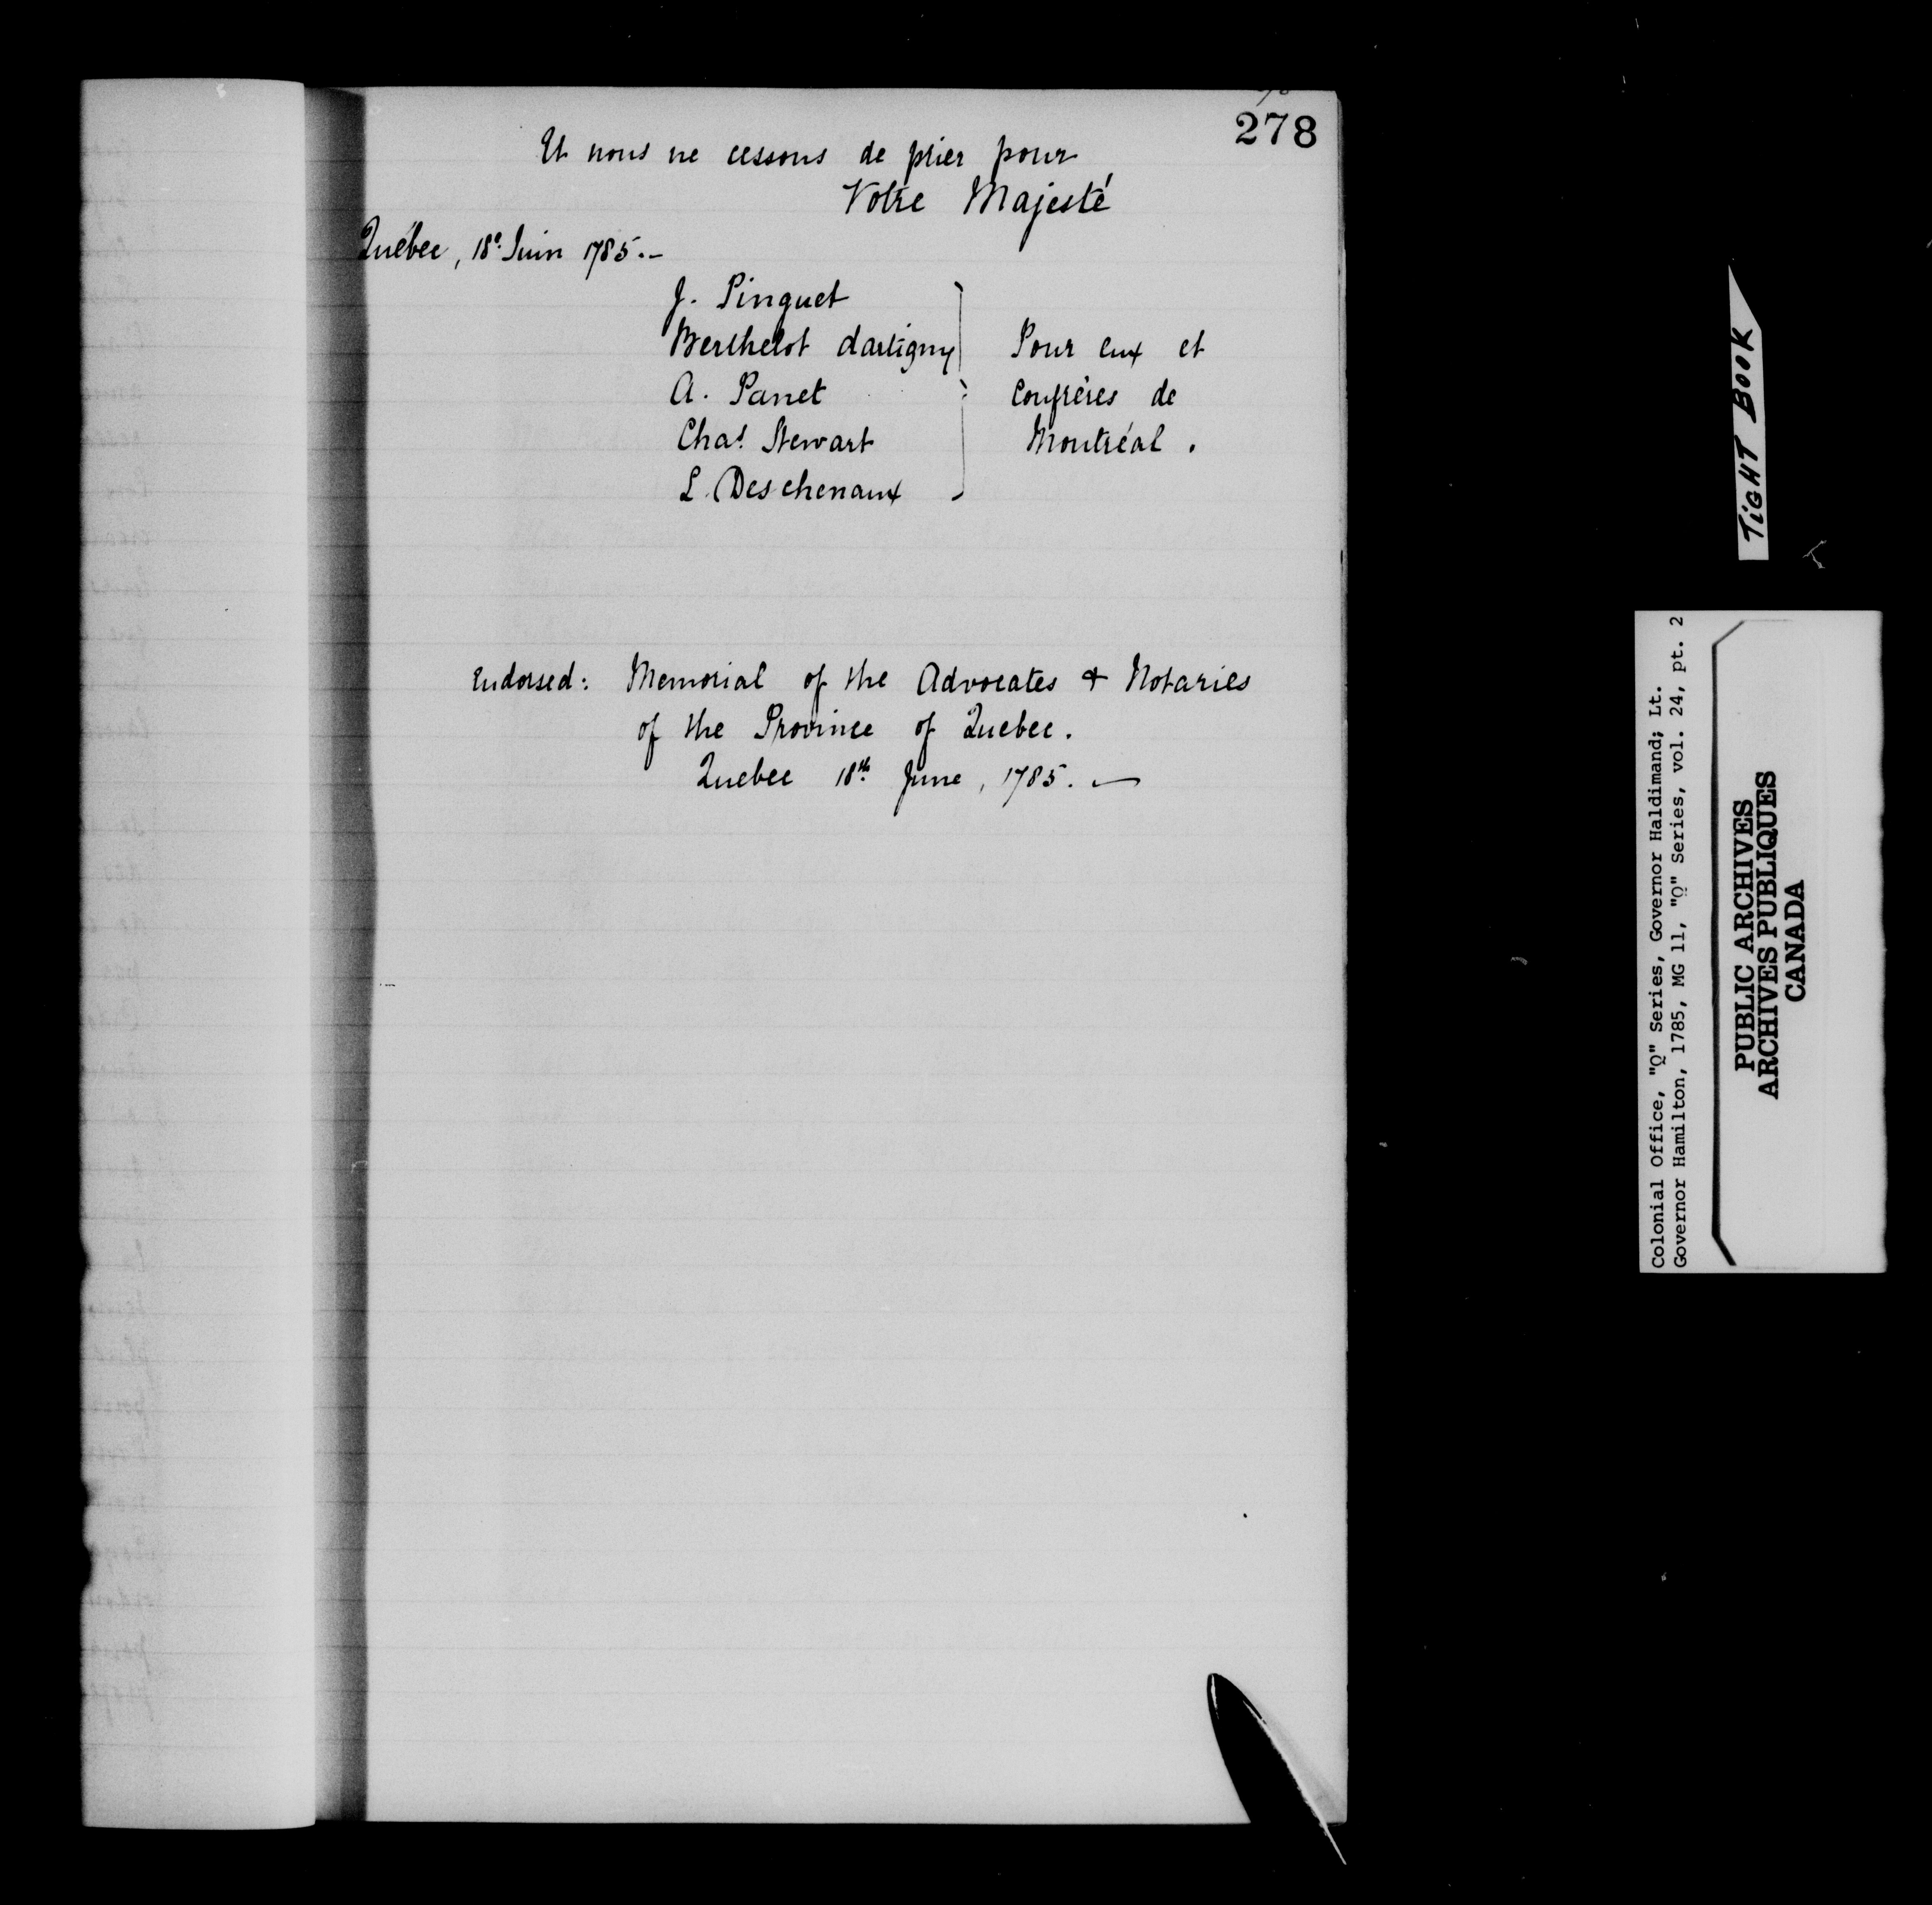 278
Et nous ne cessons de prier pour
Votre Majesté
Québec, 18e Juin 1785.-
J. Pinguet
Berthelot dartigny Pour eux et
A. Panet confrères de
Chas Stewart Montréal.
L. Deschenaux
Endorsed: Memorial of the Advocates & Notaries
of the Province of Quebec.
Quebec 18th June, 1785. —
TIGHT BOOK
Colonial Office, "Q" Series, Governor Haldimand; Lt.
Governor Hamilton, 1785, MG 11, "Q" Series, vol. 24, pt. 2
PUBLIC ARCHIVES
ARCHIVES PUBLIQUES
CANADA